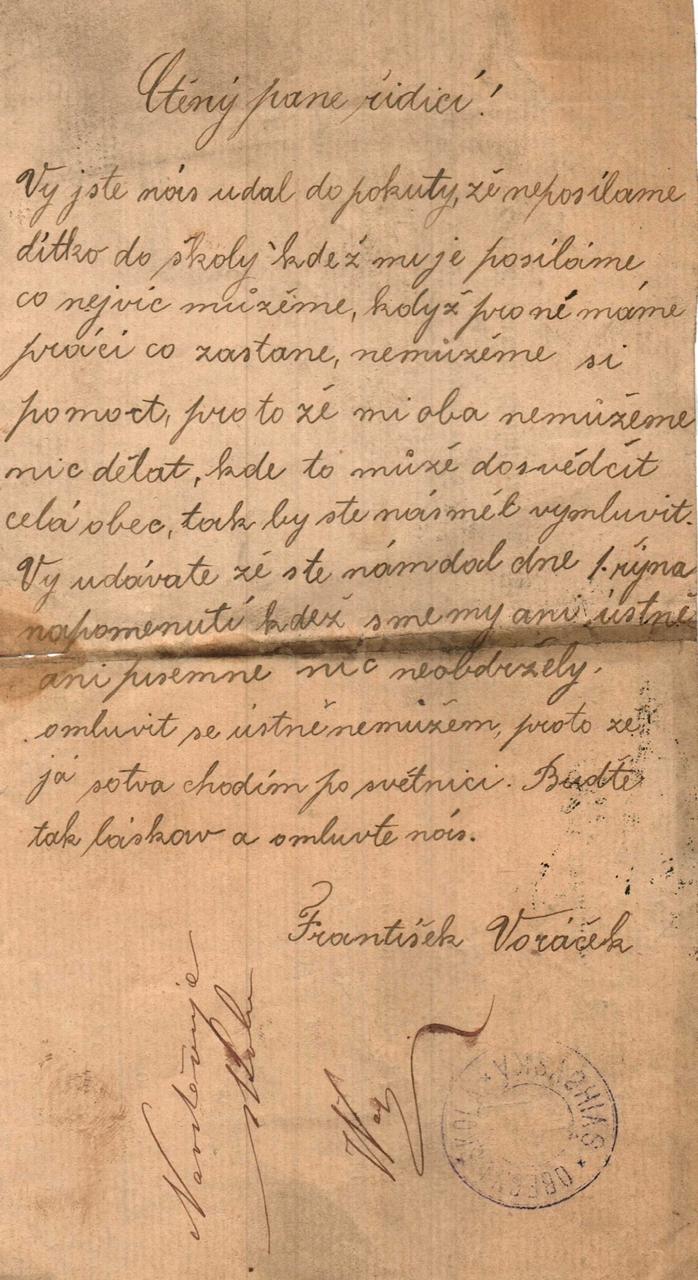 Ctěný pane řídící!
Vy jste nás udal do pokuty, zě neposílame
dítko do školy kdež mu je posíláme
co nejvíc můzěme, když pro ně máme
práci co zastane, nemůzéme si
pomoct, proto zé mi oba nemůžeme
nic dělat, kde to můzé dosvédčít
celá obec, tak by ste násměl vymluvit.
Vy udávate zé ste námdal dne 1. rýjna
napomenutí kdež sme my ani ústně
ani pisemně nic neobdržely.
omluvit se ústně nemůžem, proto ze
já sotva chodím po světnici. Buďte
tak láskav a omluvte nás.
František Voráček
Navštěvuje
školu
OBECNÁ ŠKOLA
SVIHOVSKA